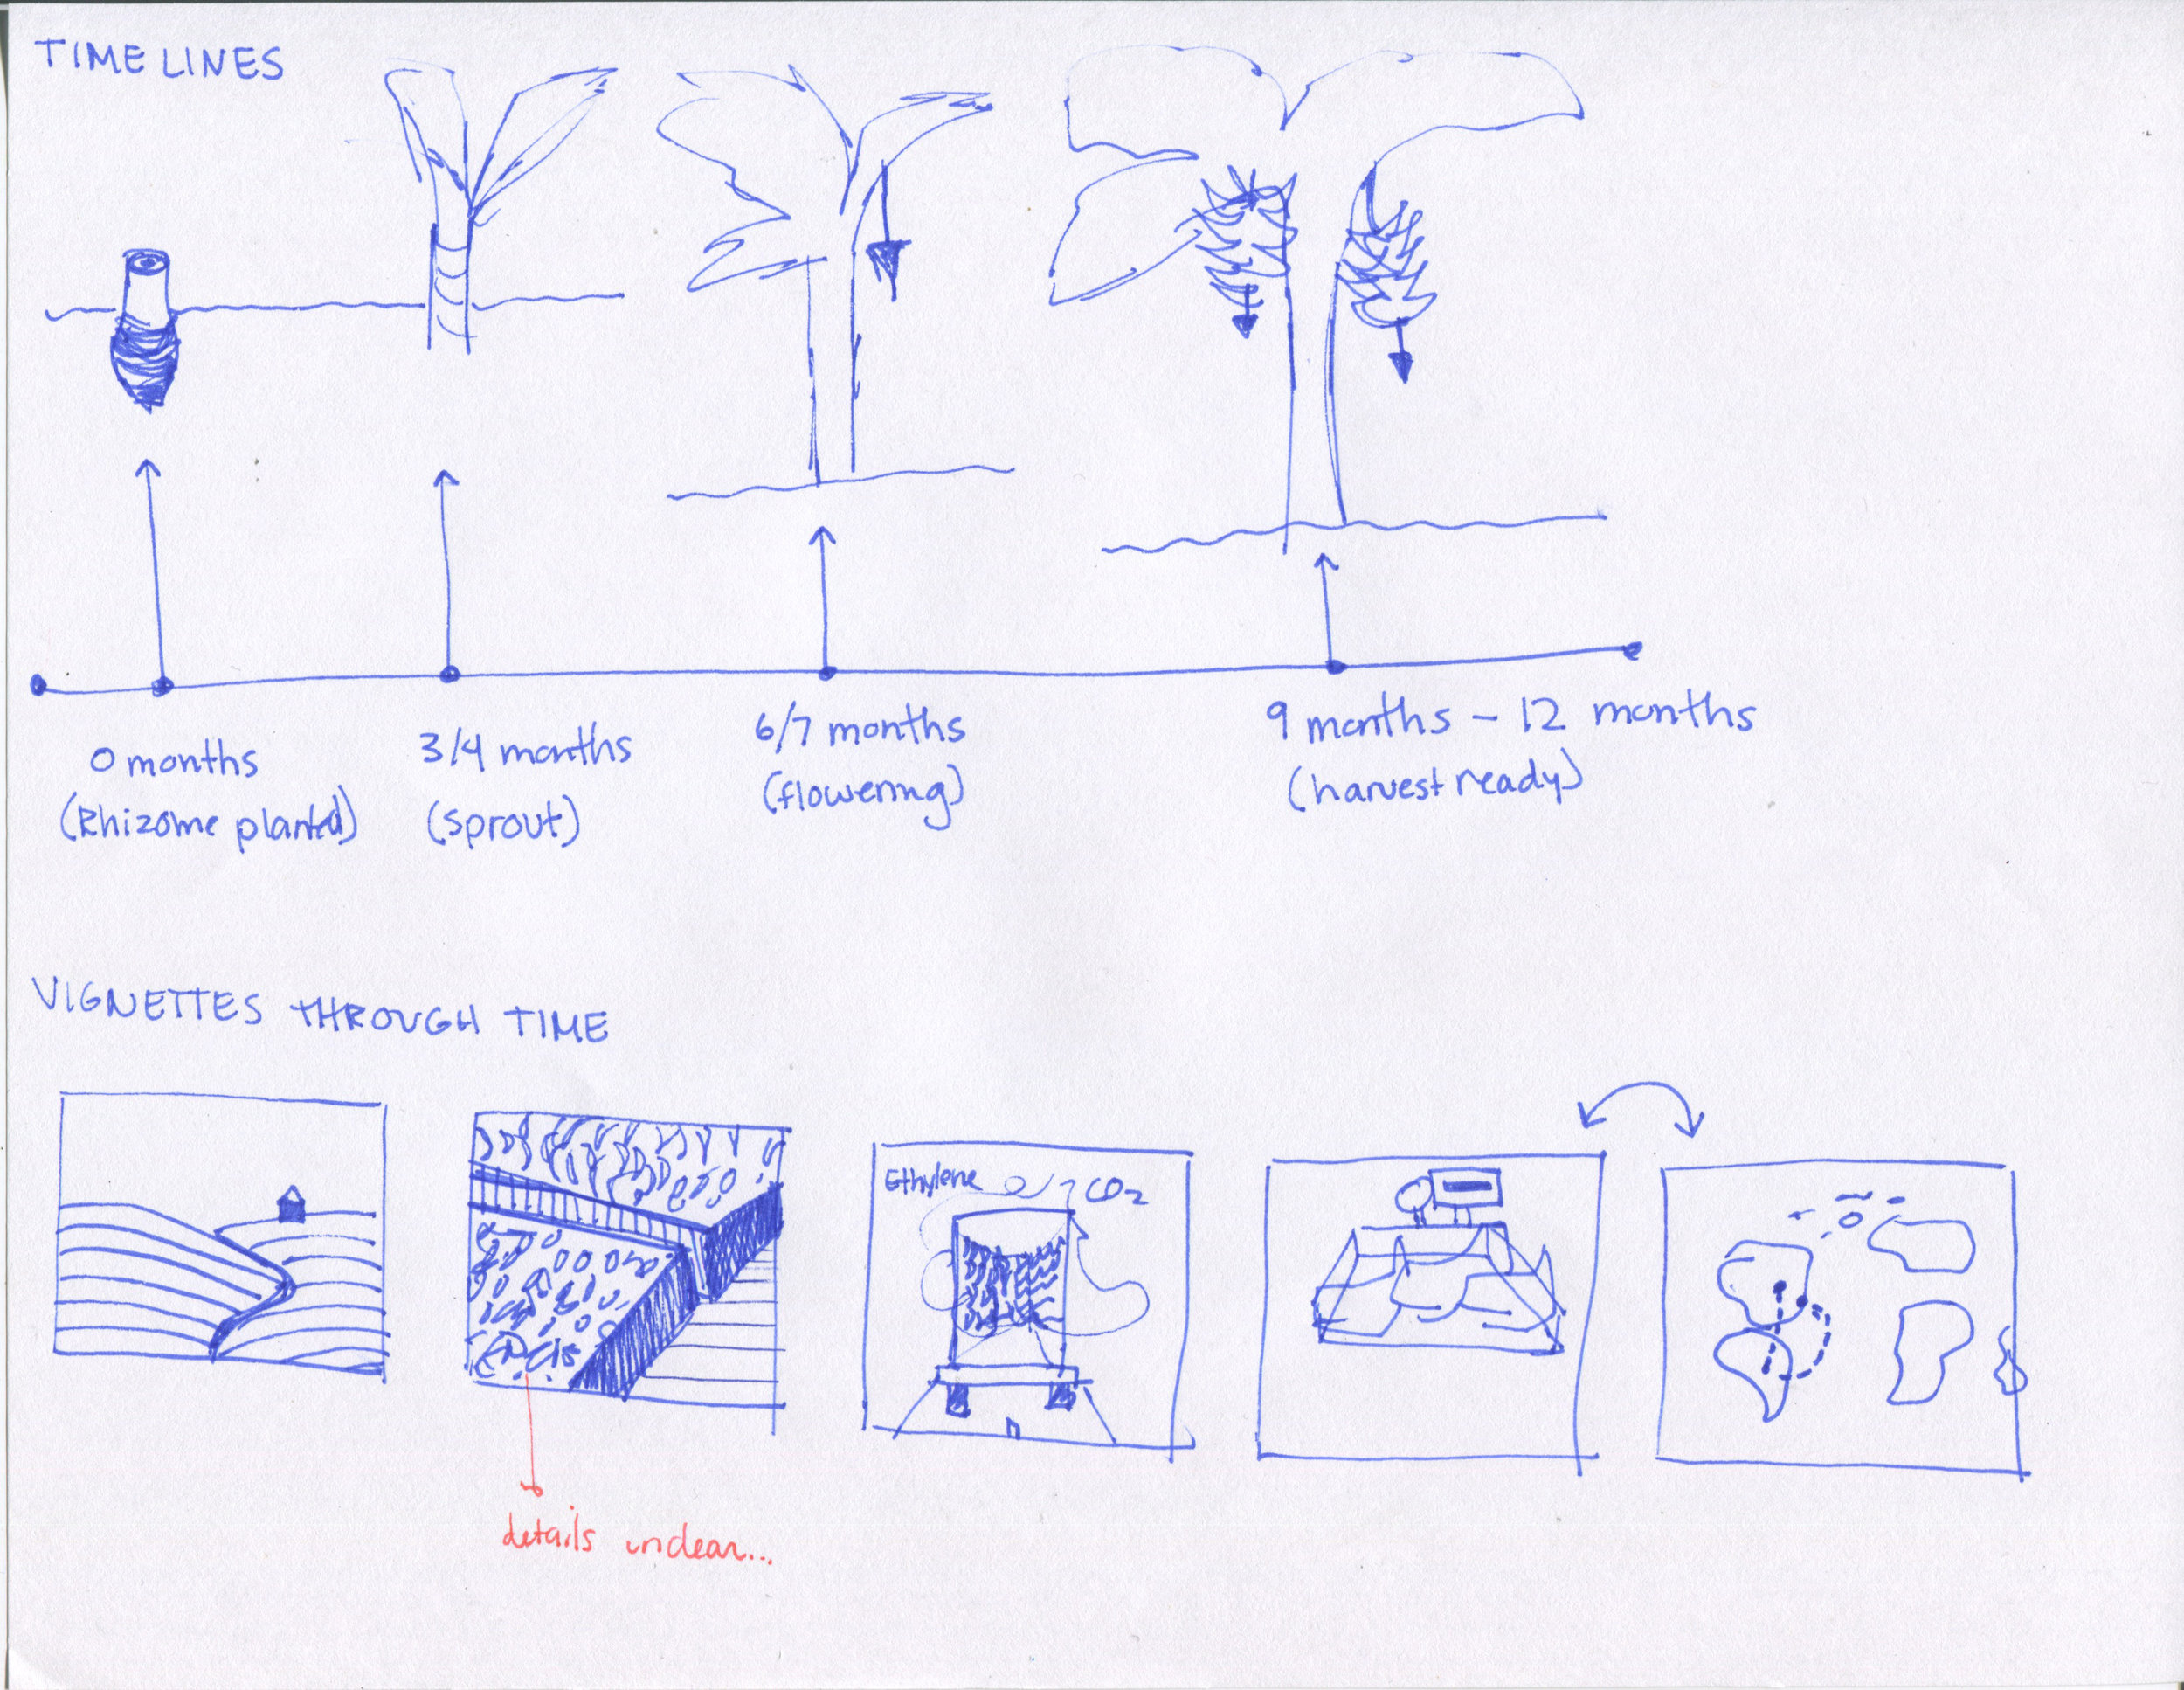 TIMELINES
0 months
(Rhizome planted)
3/4 months
(sprout)
6/7 months
(flowering)
9 months - 12 months
(harvest ready)
VIGNETTES THROUGH TIME
Ethylene
CO2
details unclear...